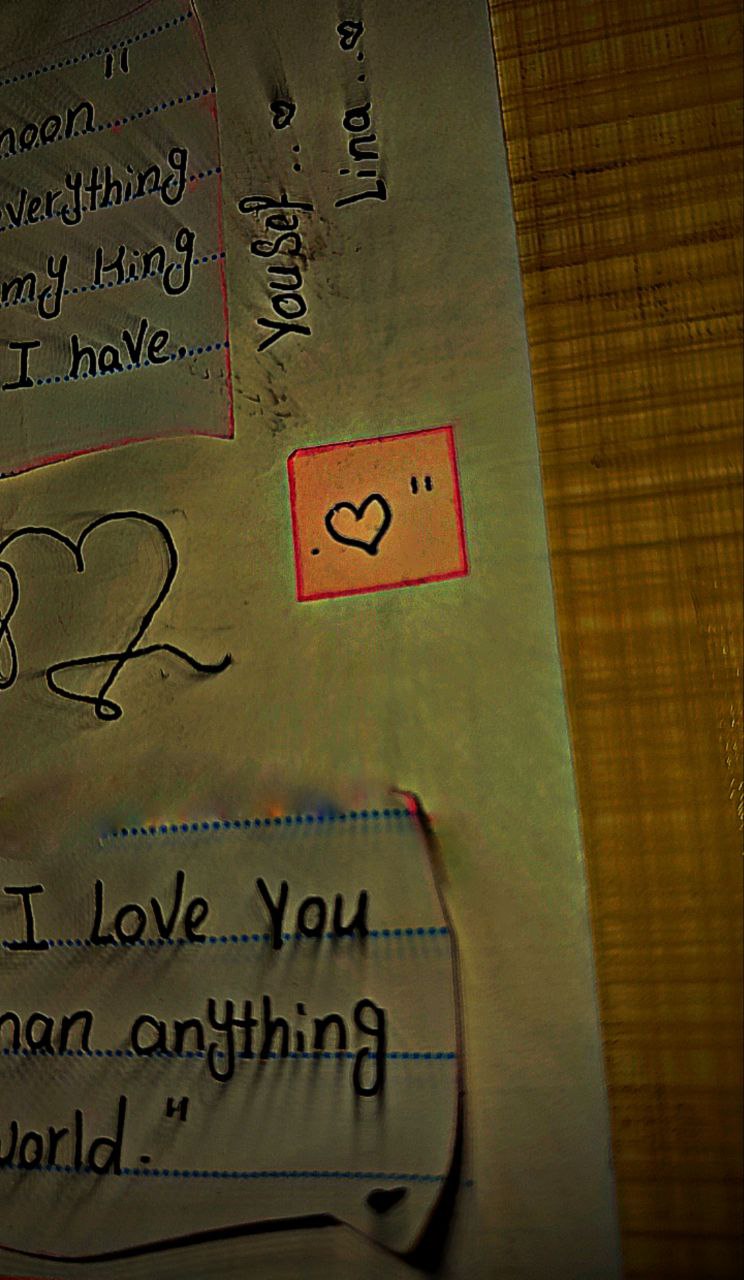 "
moon
everything
my King
I have.
Yousef...
Lina...
"
I Love You
anything
world."